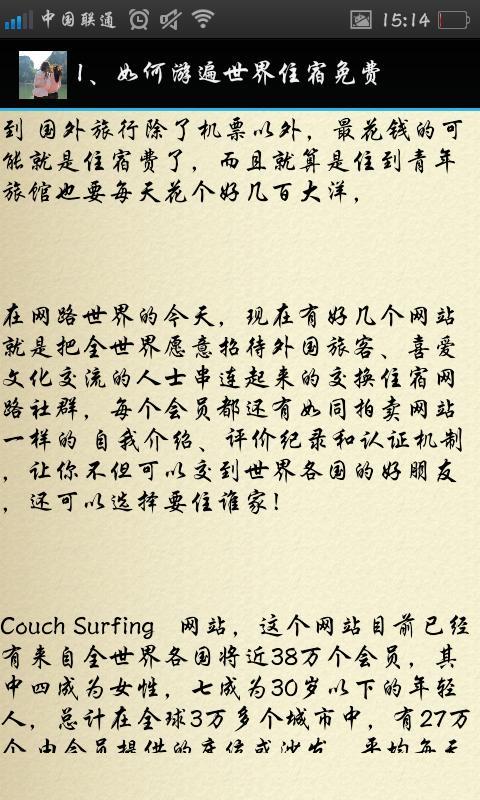 中国联通 15:14
1、如何游遍世界住宿免费
到 国外旅行除了机票以外，最花钱的可
能就是住宿费了，而且就算是住到青年
旅馆也要每天花个好几百大洋，
在网路世界的今天，现在有好几个网站
就是把全世界愿意招待外国旅客、喜爱
文化交流的人士串连起来的交换住宿网
路社群，每个会员都还有如同拍卖网站
一样的 自我介绍、评价纪录和认证机制
，让你不但可以交到世界各国的好朋友
，还可以选择要住谁家！
Couch Surfing 网站，这个网站目前已经
有来自全世界各国将近38万个会员，其
中四成为女性，七成为30岁以下的年轻
人，总计在全球3万多个城市中，有27万
个由会员提供的床位或沙发，平均每天